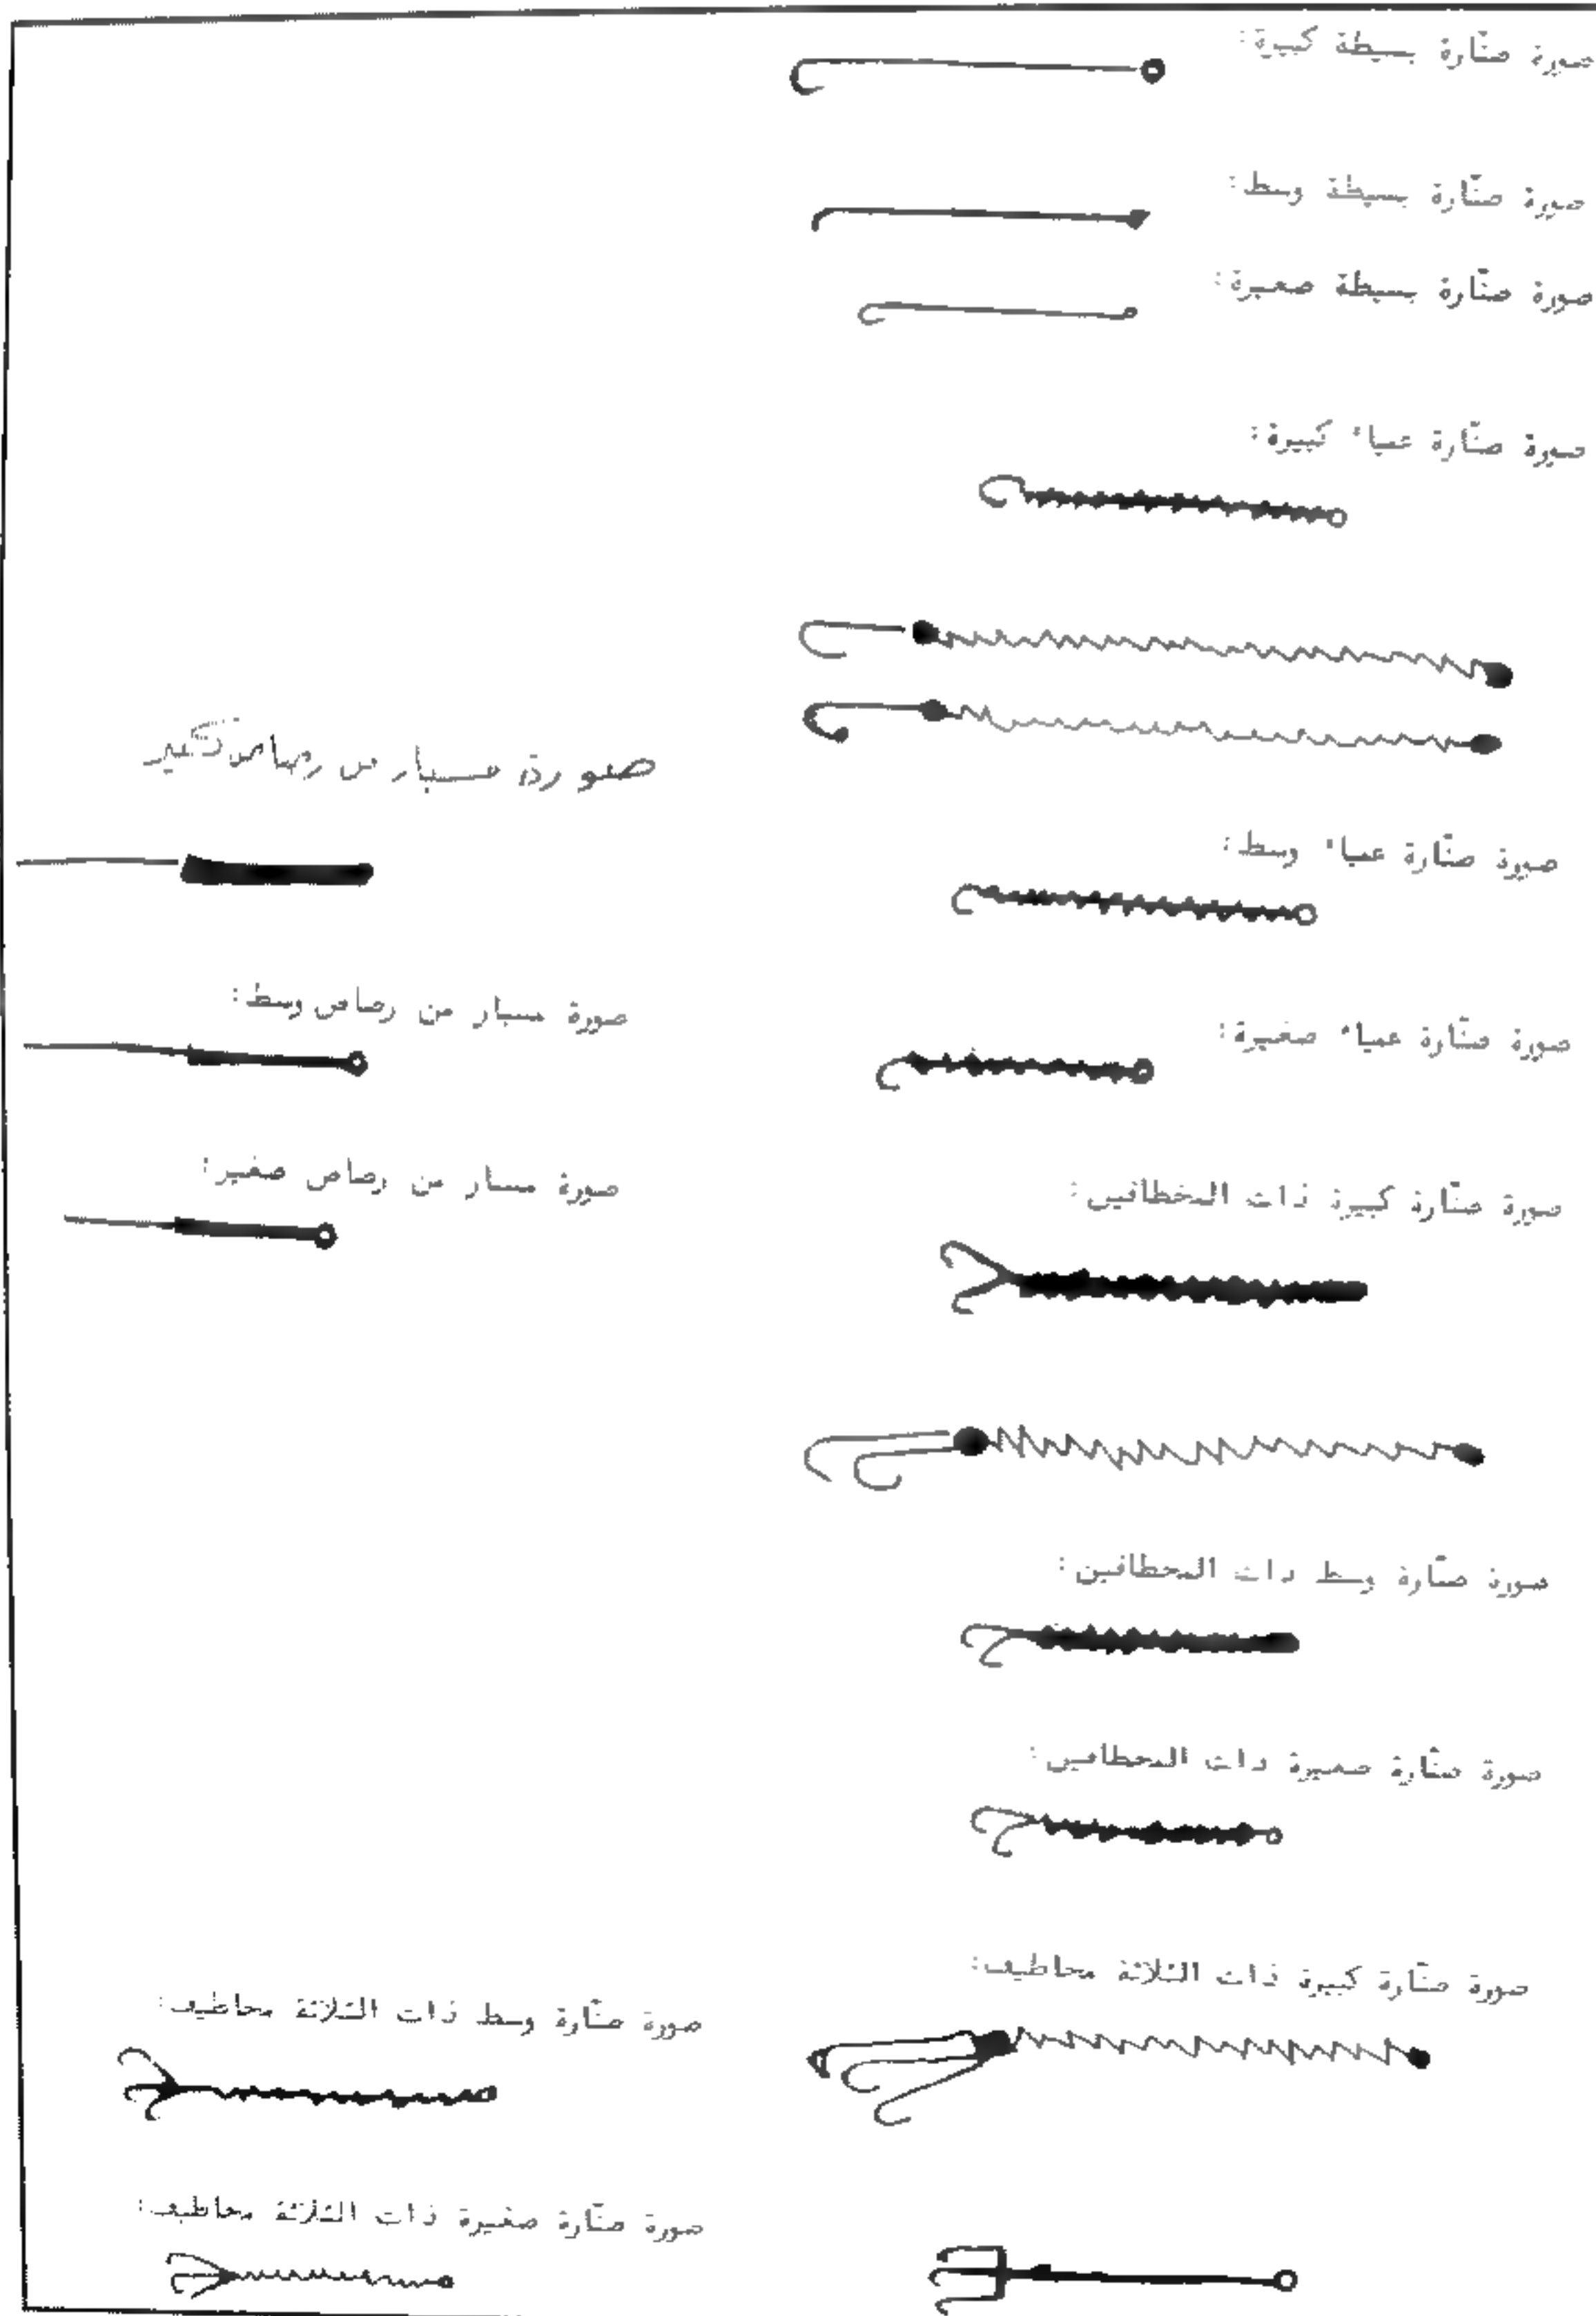 صورة صنّارة بسيطة كبيرة:
صورة صنّارة بسيطة وسط:
صورة صنّارة بسيطة صغيرة:
صورة صنّارة عمياء كبيرة:
صورة صنّارة عمياء وسط:
صورة صنّارة عمياء صغيرة:
صورة صنّارة كبيرة ذات المخطافين:
صورة صنّارة وسط ذات المخطافين:
صورة صنّارة صغيرة ذات المخطافين:
صورة صنّارة كبيرة ذات الثلاثة مخاطيف:
صورة مسبار من رصاص كبير
صورة مسبار من رصاص وسط:
صورة مسبار من رصاص صغير:
صورة صنّارة وسط ذات الثلاثة مخاطيف:
صورة صنّارة صغيرة ذات الثلاثة مخاطيف: